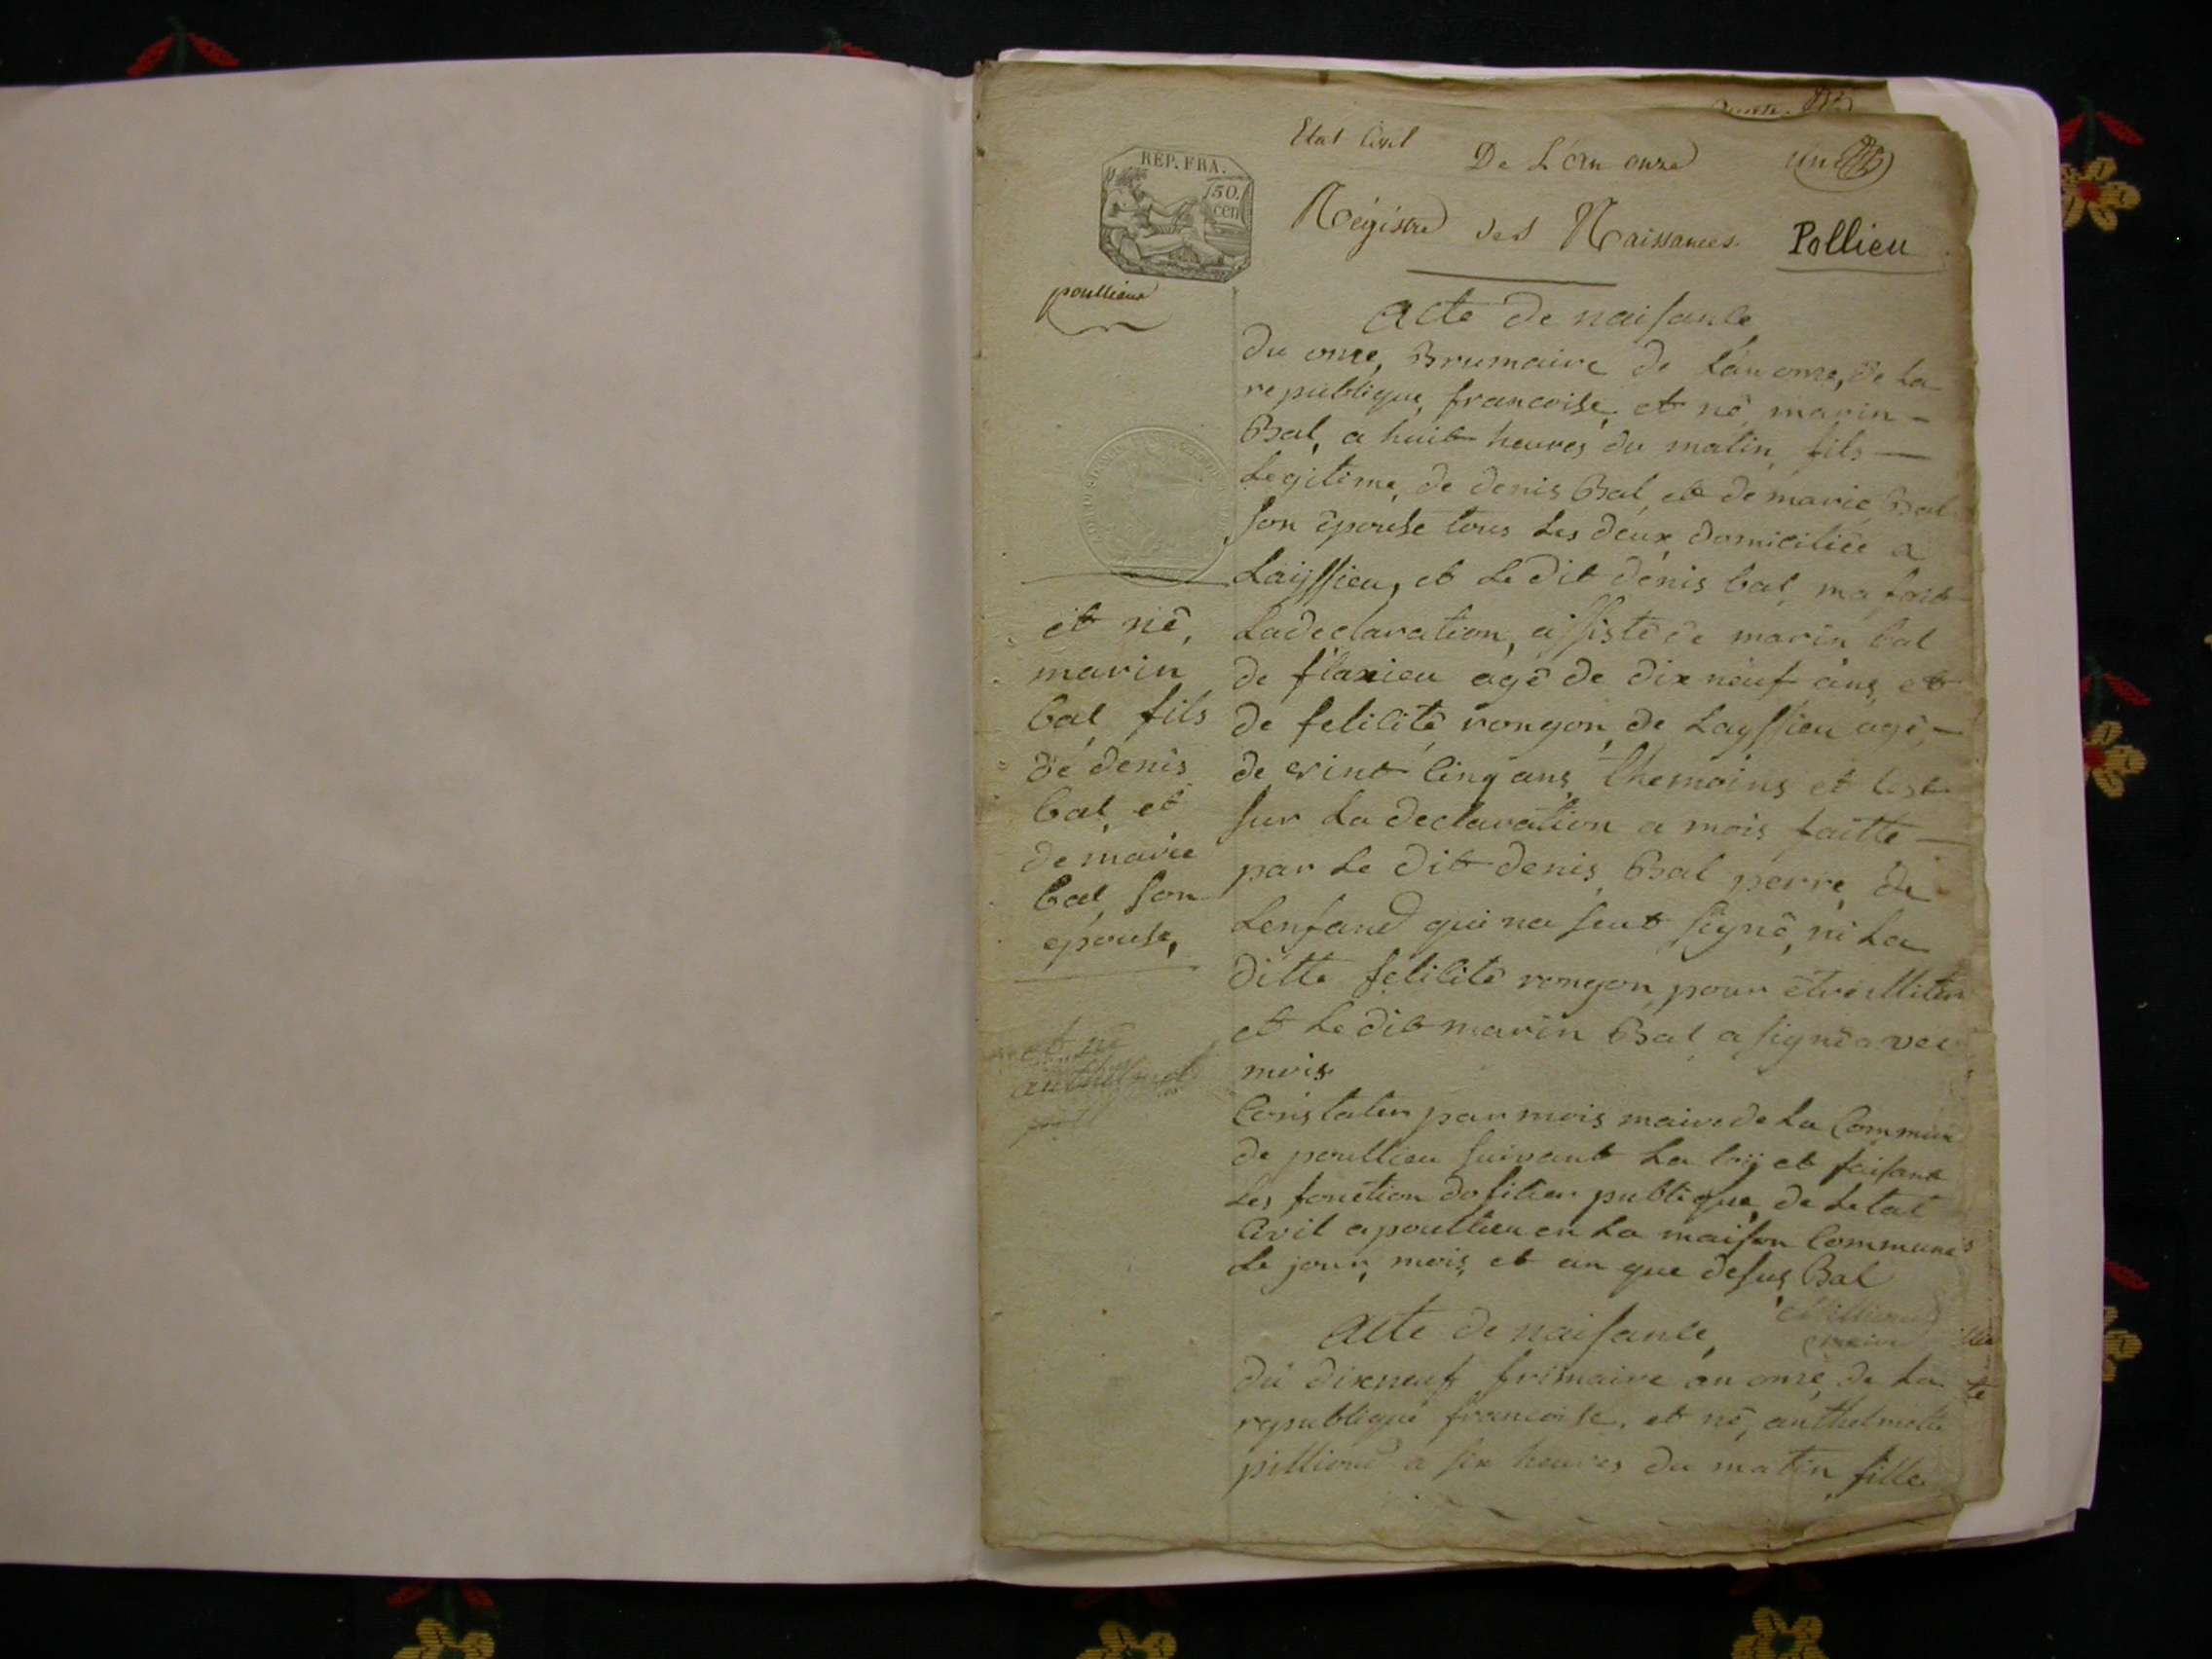 Etat Civil De L'an onze un
RÉP. FRA.
50.
cen
Régistre des Naissances Pollieu
poullieux
acte de naisance
du onze, Brumaire de L'an onze, de La
republique, francoise, et né marin -
Bal, a huit heures du matin, fils —
Legitime, de denis Bal, et de marie Bal
son épouse tous Les deux domiciliée a
Laÿssieu, et Le dit denis bal, ma fait
La declaration, assisté de marin bal
de flaxieu agé de dix neuf ans, et
de felicité rongon, de Layssieu agé, -
de vint cinq ans, themoins et cest
sur La declaration a mois faitte —
par Le dit denis Bal perre, de
Lenfand qui na seut signé, ni La
ditte felicité rongon, pour être illiter
et Le dit marin Bal a signé avec
mois
Constater par mois maire de La Commune
de poullieu suivant La loÿ et faisant
Les fonction dofitier publique, de Letat
Civil a poullieu en La maison Commune
Le jour, mois, et an que desus Bal
maire
et né,
marin
bal, fils
de denis
bal, et
de marie
bal, son
epouse,
et né
acte de naisance,
du dixneuf frimaire an onze, de La
republique francoise, et né, anthelmette
pilliond a six heures du matin, fille